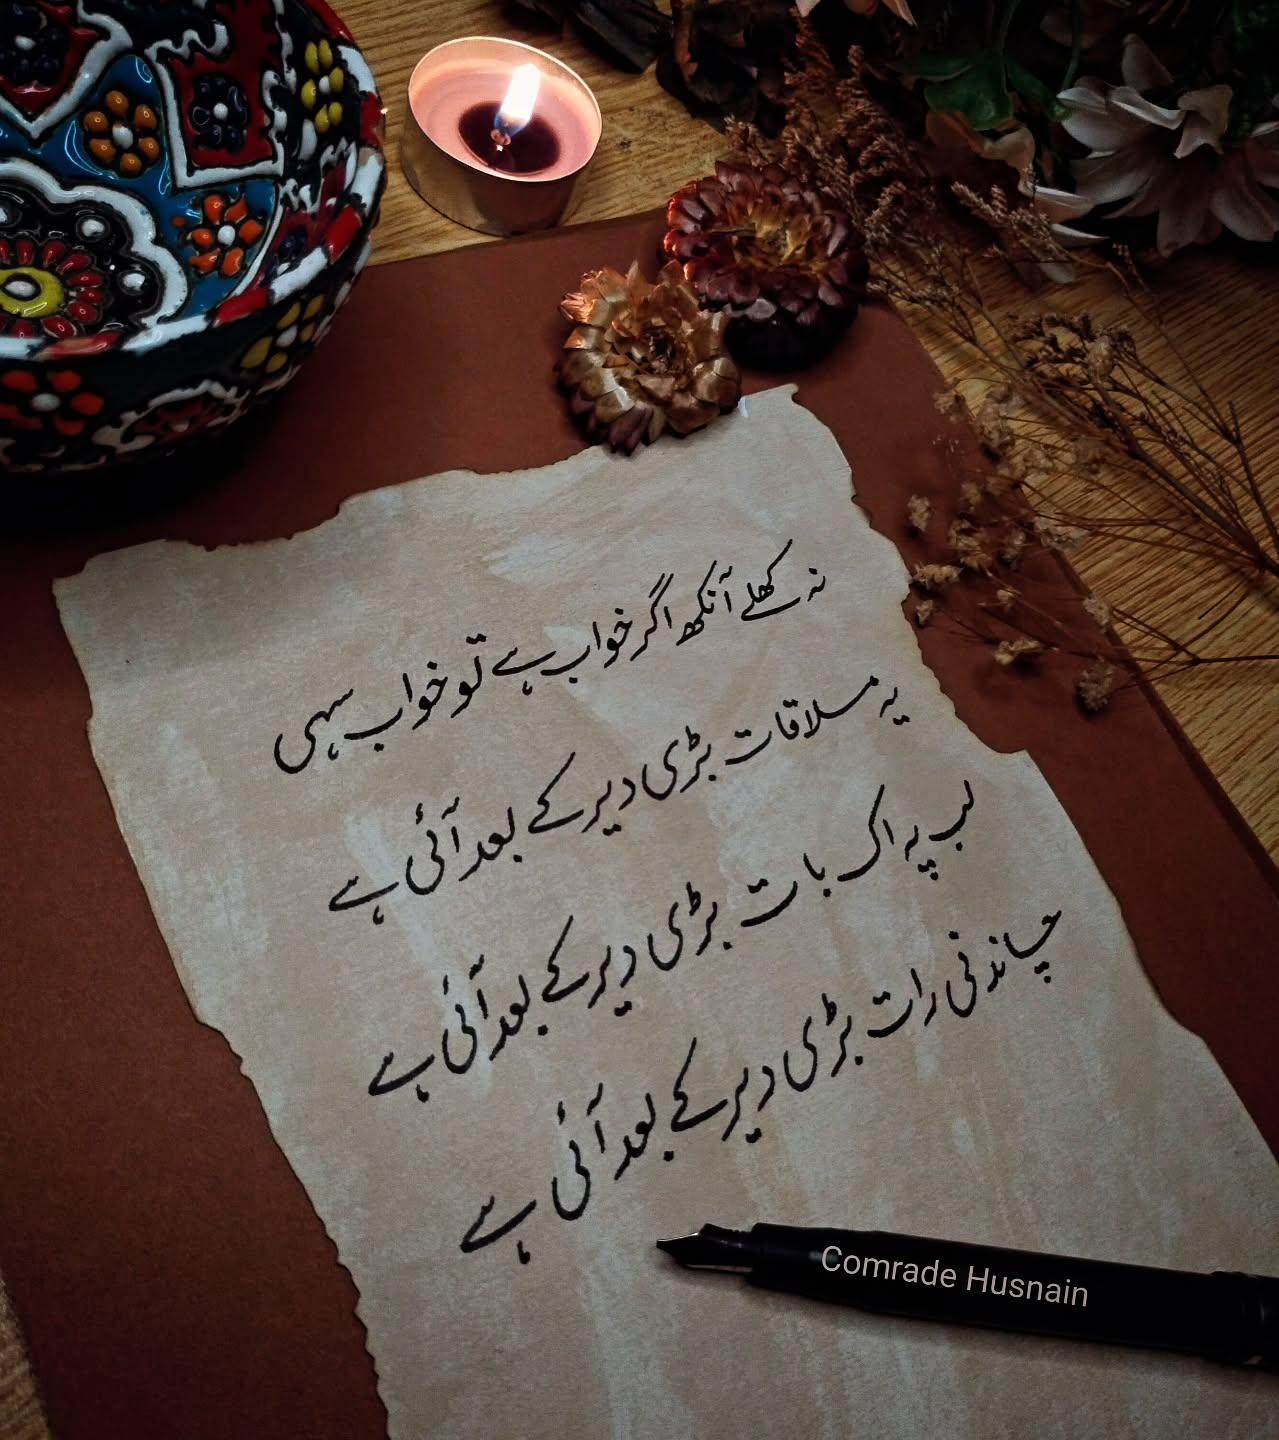 نہ کھلے آنکھ اگر خواب ہے تو خواب سہی
یہ ملاقات بڑی دیر کے بعد آئی ہے
لب پہ اک بات بڑی دیر کے بعد آئی ہے
چاندنی رات بڑی دیر کے بعد آئی ہے
Comrade Husnain